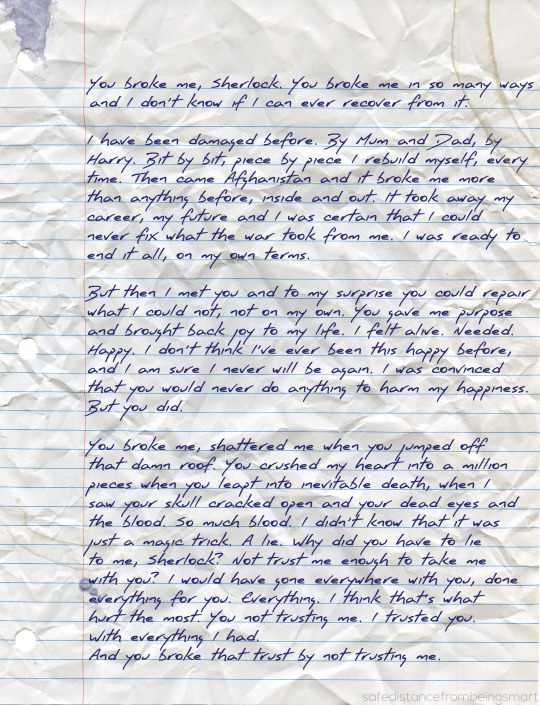 You broke me, Sherlock. You broke me in so many ways
and I don't know if I can ever recover from it.
I have been damaged before. By Mum and Dad, by
Harry. Bit by bit, piece by piece I rebuild myself, every
time. Then came Afghanistan and it broke me more
than anything before, inside and out. It took away my
career, my future and I was certain that I could
never fix what the war took from me. I was ready to
end it all, on my own terms.
But then I met you and to my surprise you could repair
what I could not, not on my own. You gave me purpose
and brought back joy to my life. I felt alive. Needed.
Happy. I don't think I've ever been this happy before,
and I am sure I never will be again. I was convinced
that you would never do anything to harm my happiness.
But you did.
You broke me, shattered me when you jumped off
that damn roof. You crushed my heart into a million
pieces when you leapt into inevitable death, when I
saw your skull cracked open and your dead eyes and
the blood. So much blood. I didn't know that it was
just a magic trick. A lie. Why did you have to lie
to me, Sherlock? Not trust me enough to take me
with you? I would have gone everywhere with you, done
everything for you. Everything. I think that's what
hurt the most. You not trusting me. I trusted you.
With everything I had.
And you broke that trust by not trusting me.
safedistancefrombeingsmart